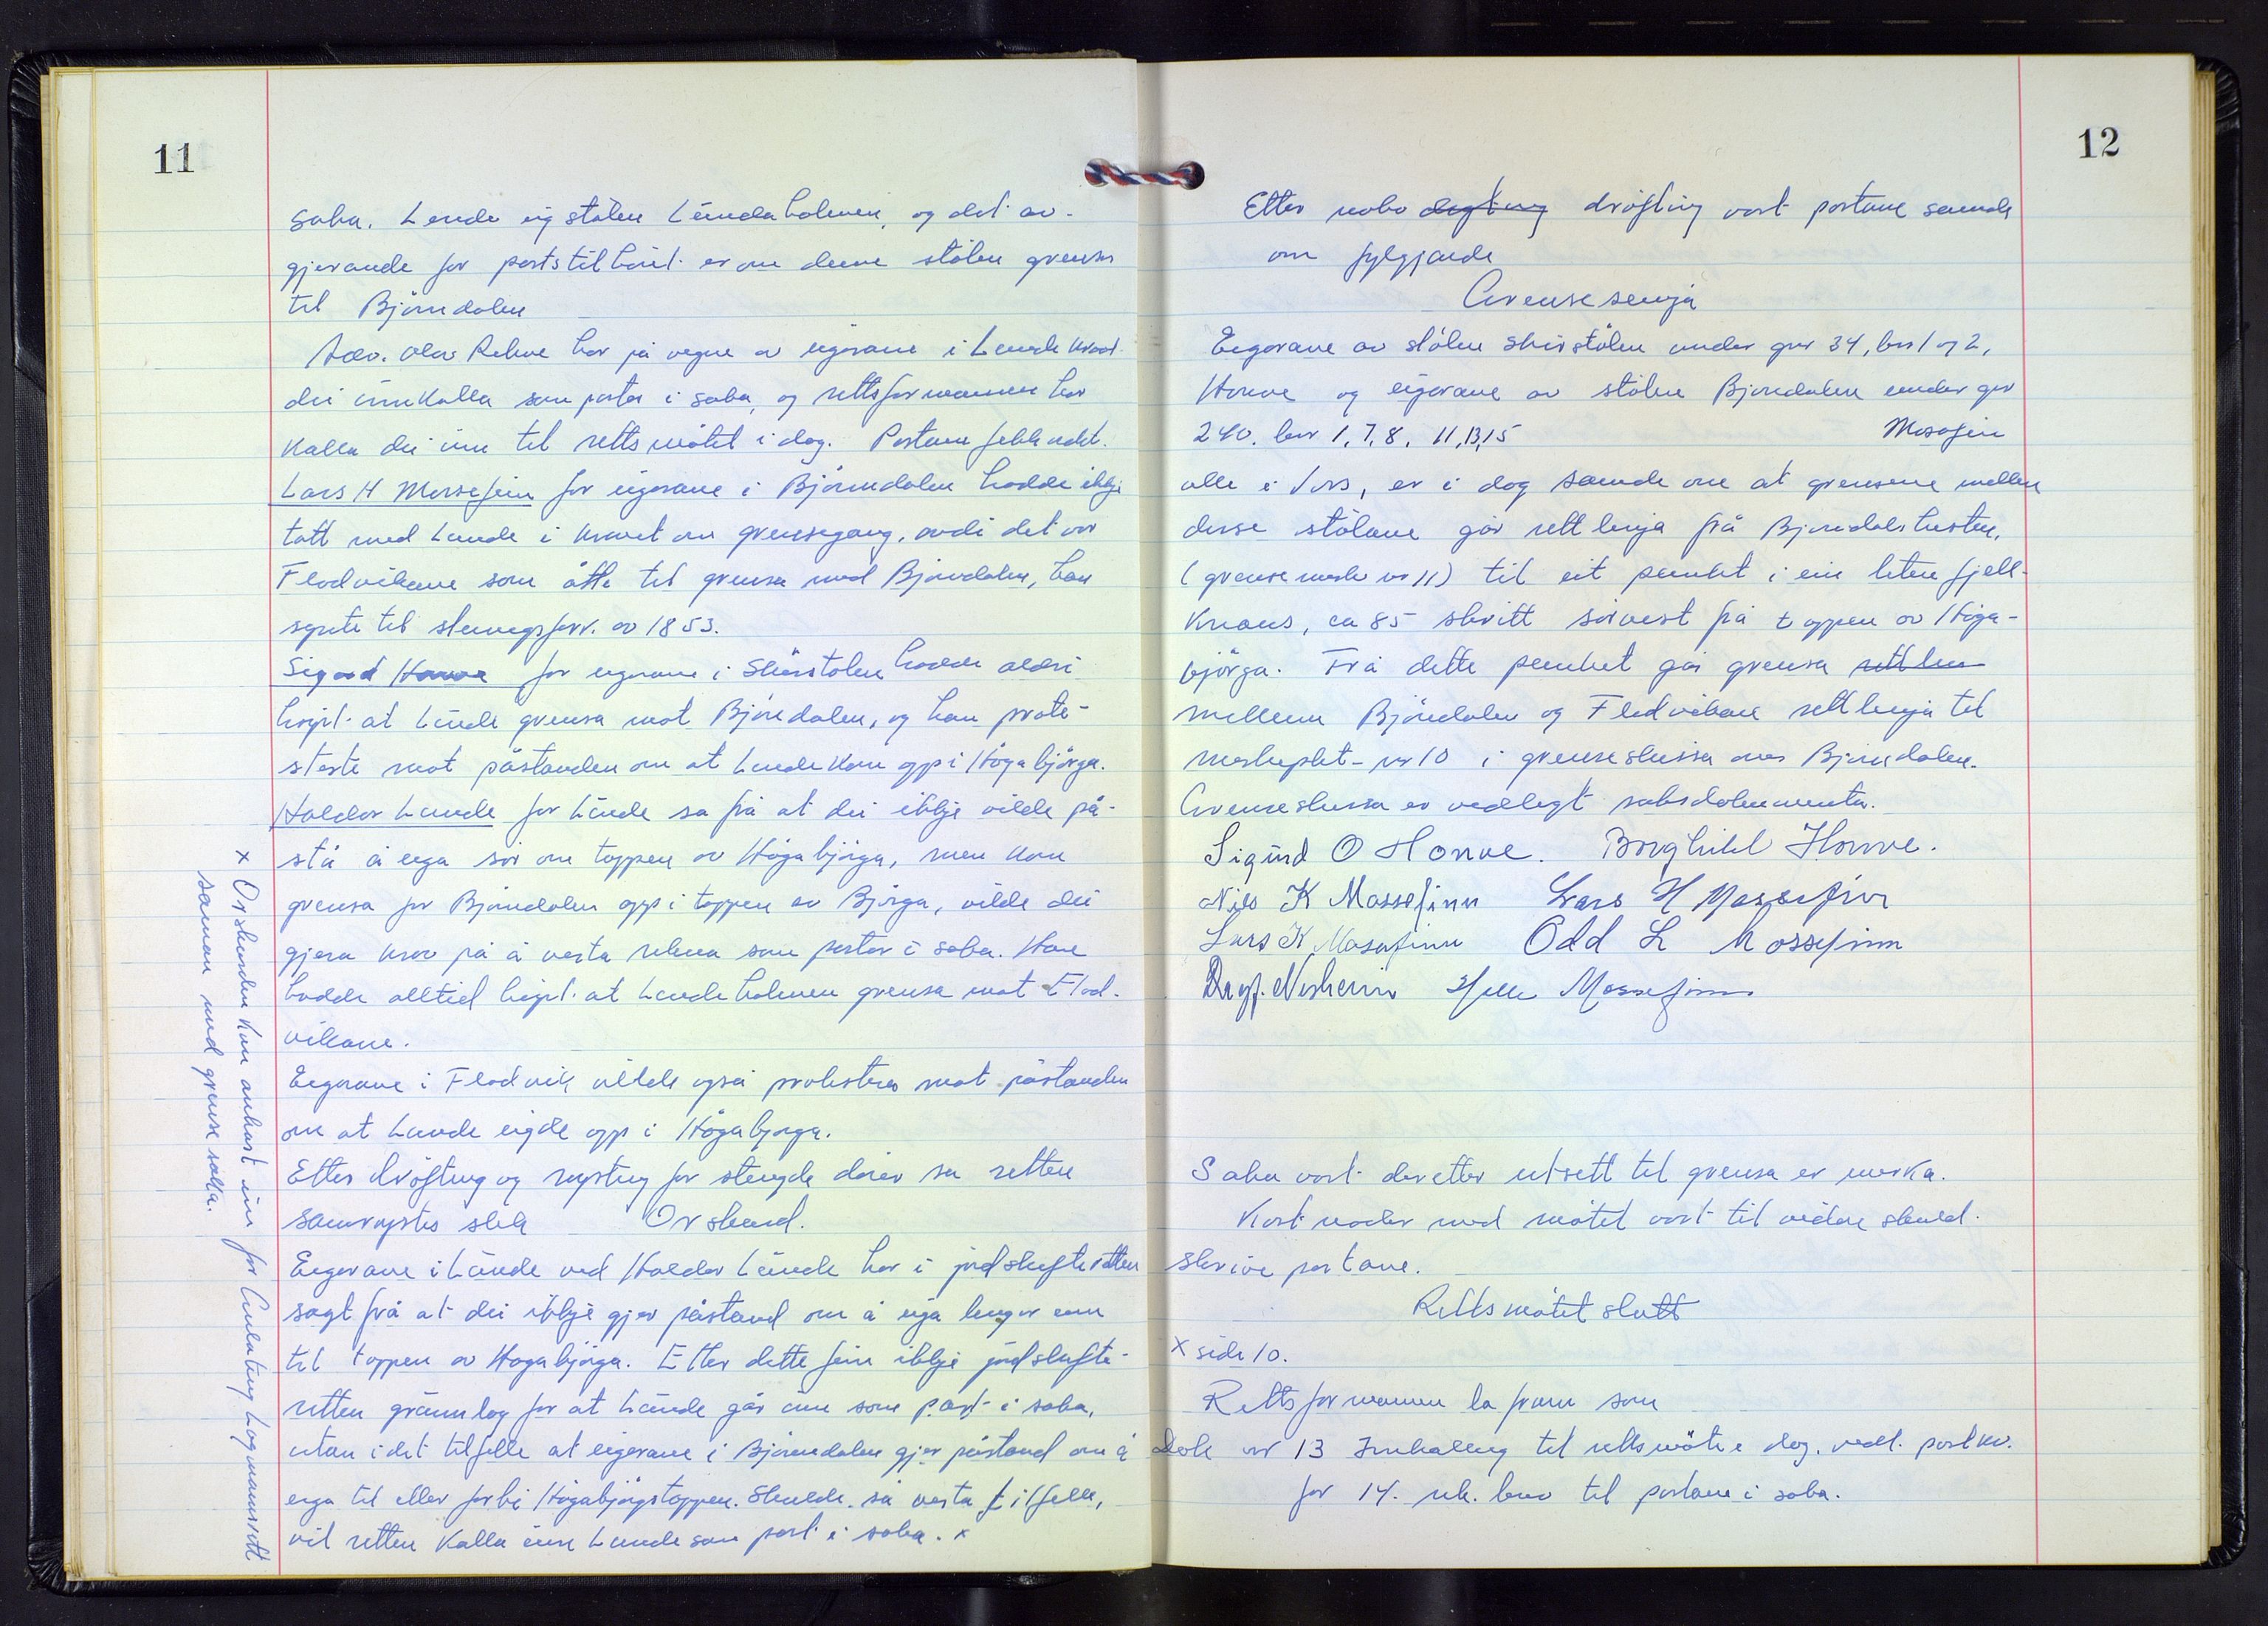 11
saka. Lunde eig stölen Lundaholmen, og det av-
gjerande for partstilhövet er om denne stölen grensar
til Björndalen
Adv. Olav Rekve har på vegne av eigarane i Lunde kravd
dei innkalla som partar i saka, og rettsformannen har
kalla dei inn til rettsmötet i dag. Partane fekk ordet.
Lars H Mossefinn for eigarane i Björndalen hadde ikkje
tatt med Lunde i kravet om grensegang, avdi det var
Flodvikane som åtte til grensa med Björndalen, han
synte til skeinsforr. av 1853.
Sigurd Honve for eigarane i Skirstölen hadde aldri
höyrt at Lunde grensa mot Björndalen, og han prote-
sterte mot påstanden om at Lunde kom opp i Högabjörga.
Haldor Lunde for Lunde sa frå at dei ikkje vilde på-
stå å eiga sör om toppen av Högabjörga, men kom
grensa for Björndalen opp i toppen av Björga, vilde dei
gjera krav på å verta rekna som partar i saka. Han
hadde alltid höyrt at Lundeholmen grensa mot Flod-
vikane.
Eigarane i Flodvik vilde også protestera mot påstanden
om at Lunde eigde opp i Högabjörga.
Etter dröfting og røysting for stengde dörer sa retten
samröystes slik Orskurd.
Eigarane i Lunde ved Haldor Lunde har i jordskifteretten
sagt frå at dei ikkje gjer påstand om å eiga lenger enn
til toppen av Högabjörga. Etter dette finn ikkje jordskifte-
retten grunnlag for at Lunde går inn som part i saka,
utan i det tilfelle at eigarane i Björndalen gjer påstand om å
eiga til eller forbi Högabjörgtoppen. Skulde så verta tilfelle,
vil retten kalla inn Lunde som part i saka. x
x Orskurden kan ankast inn for Gulating Lagmannsrett
saman med grensesaka.
12
Etter noko dröfting vart partane samde
om fylgjande
Grensesemja
Eigarane av stölen Skirstölen under gnr 34, bnr 1 og 2,
Honve og eigarane av stölen Björndalen under gnr
240. bnr 1, 7, 8, 11, 13, 15 Mosafinn
alle i Voss, er i dag samde om at grensene mellom
desse stölane går rett linja frå Björndalshusten,
(grensemerke nr 11) til eit punkt i ein liten fjell-
knaus, ca 85 skritt sörvest frå toppen av Höga-
björga. Frå dette punktet går grensa rett lin
mellem Björndalen og Flodvikane rett linja til
merkepkt. nr 10 i grenseskissa over Björndalen.
Grenseskissa er vedlagt saksdokumenta.
Sigurd O Honve. Borghild Honve.
Nils K Mossefinn Lars H Mossefinn
Lars K Mosafinn Odd L Mossefinn
Nesheim Mossefinn
Saka vart deretter utsett til grensa er merka.
Kostnader med mötet vart til vidare skuld-
skrive partane.
Rettsmötet slutt
x side 10.
Rettsformannen la fram som
Dok nr 13 Innkalling til rettsmöte i dag. vedl. postkv.
for 14. rek. brev til partane i saka.